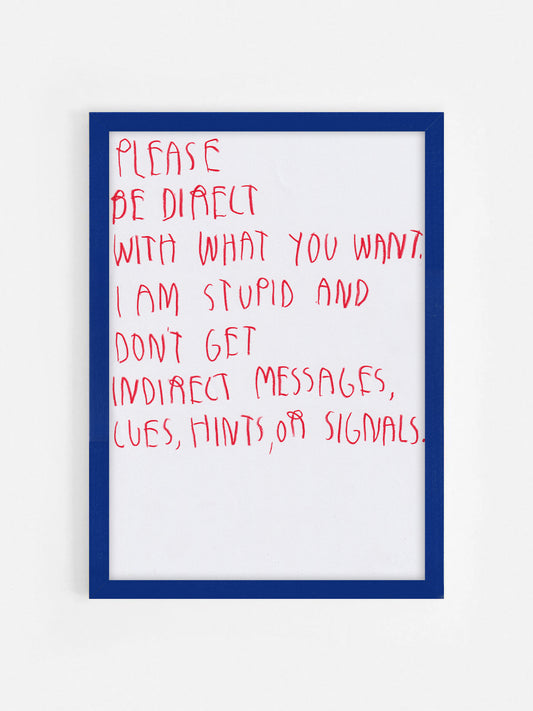 PLEASE
BE DIRECT
WITH WHAT YOU WANT.
I AM STUPID AND
DON'T GET
INDIRECT MESSAGES,
CUES, HINTS, OR SIGNALS.